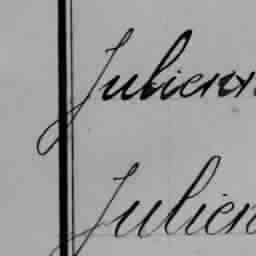 Julienn
Julien